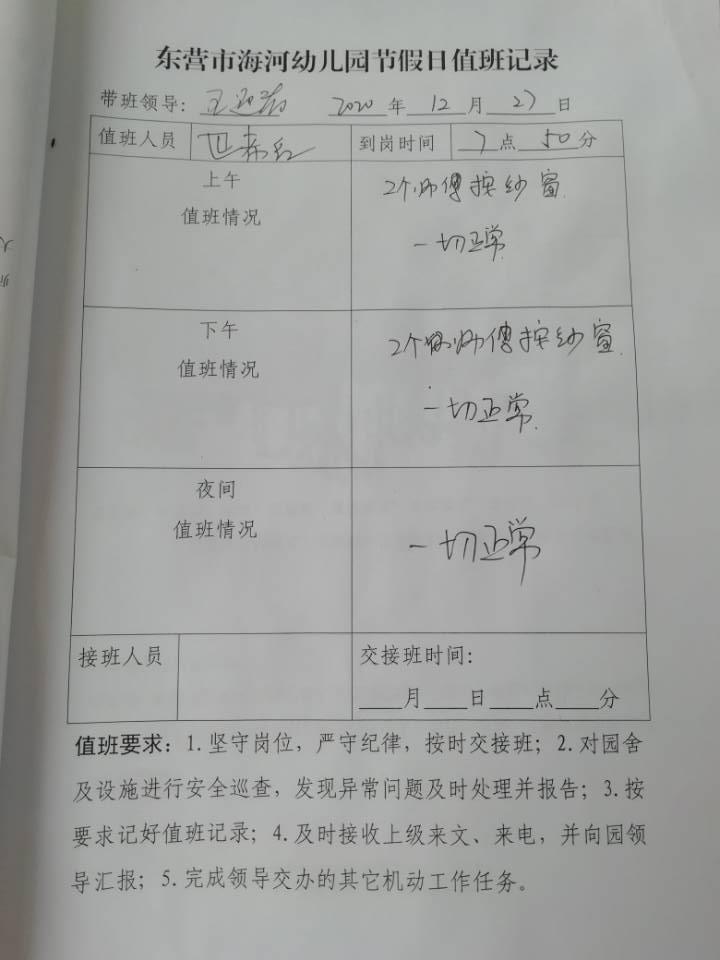 东营市海河幼儿园节假日值班记录
带班领导：王 2020年12月27日
值班人员 到岗时间 7点50分
上午
值班情况
2个师傅按纱窗
一切正常
下午
值班情况
2个师傅按纱窗.
一切正常.
夜间
值班情况
一切正常
接班人员 交接班时间：
____月____日____点____分
值班要求：1.坚守岗位，严守纪律，按时交接班；2.对园舍
及设施进行安全巡查，发现异常问题及时处理并报告；3.按
要求记好值班记录；4.及时接收上级来文、来电，并向园领
导汇报；5.完成领导交办的其它机动工作任务。